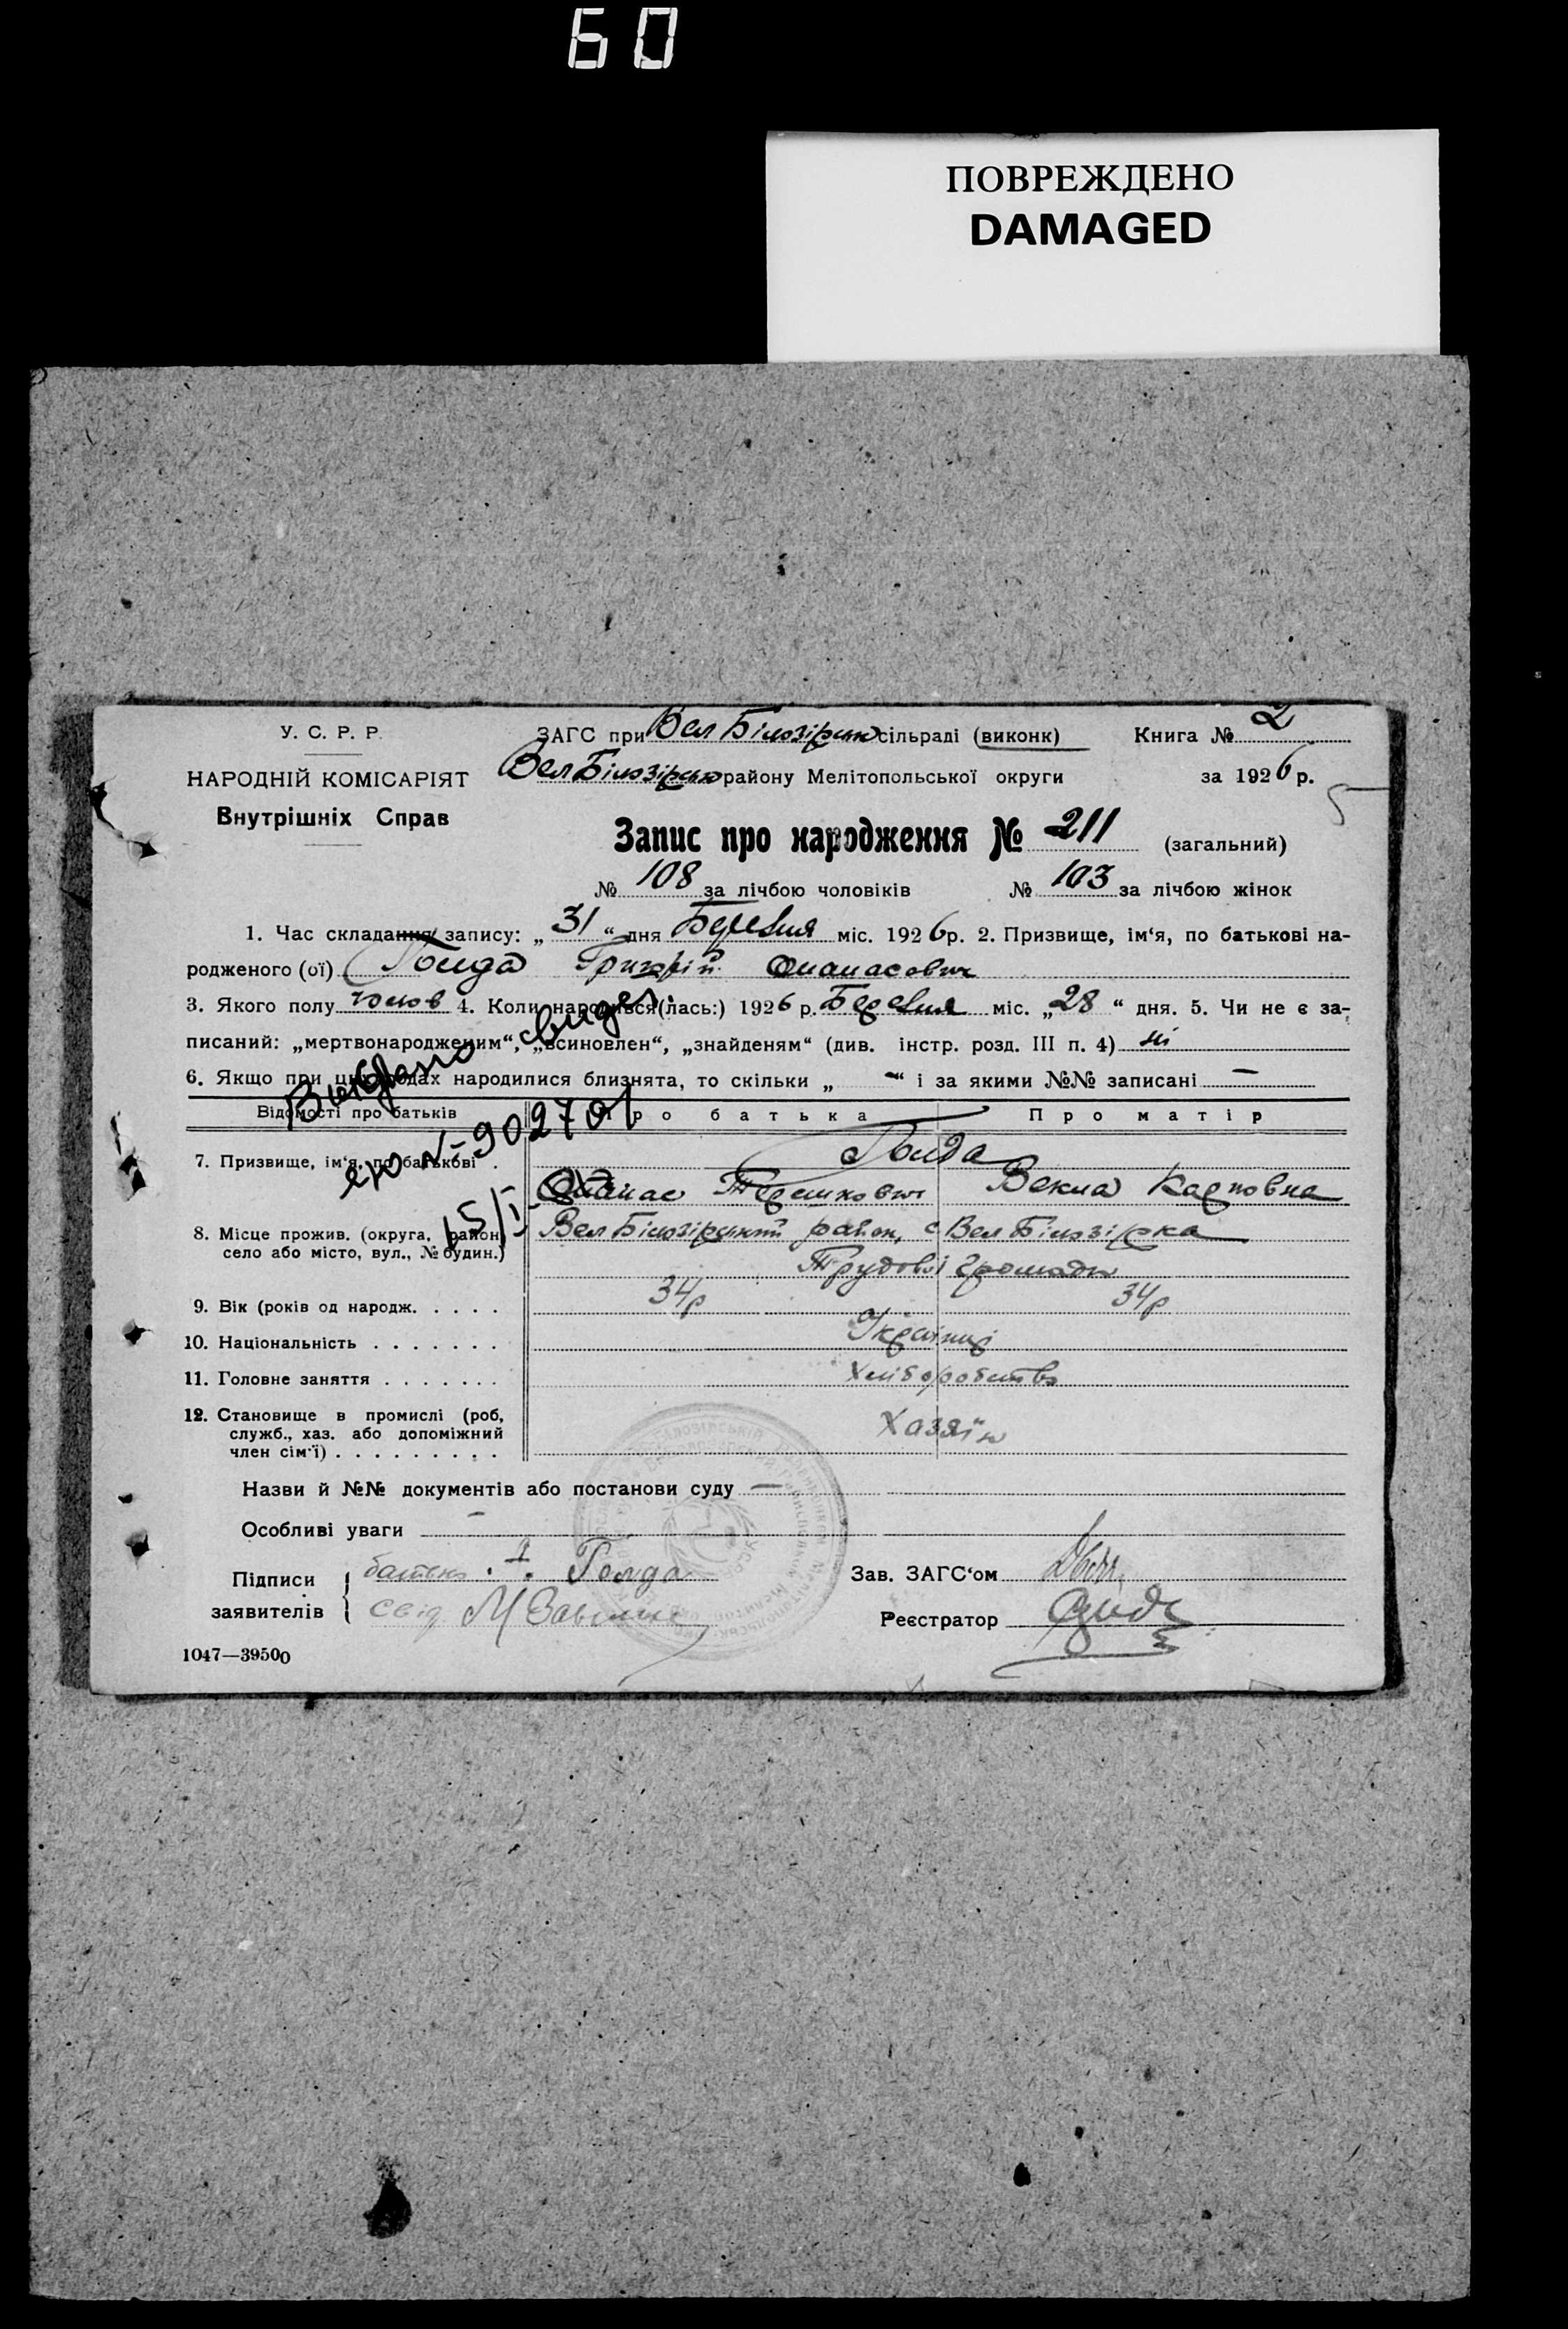 60
ПОВРЕЖДЕНО
DAMAGED
У. С. Р. Р.
НАРОДНІЙ КОМІСАРІЯТ
Внутрішніх Справ
ЗАГС при Вел Білозірськ сільраді (виконк)
Вел Білозірськ району Мелітопольської округи
Книга № 2
за 1926 р.
5
Запис про народження № 211 (загальний)
№ 108 за лічбою чоловіків № 103 за лічбою жінок
1. Час складання запису: „31“ дня Березня міс. 1926 р. 2. Призвище, ім‘я, по батькові на-
родженого (ої) Гонда Григорій Опанасович
3. Якого полу чолов 4. Коли народився(лась:) 1926 р. Березня міс. „28“ дня. 5. Чи не є за-
писаний: „мертвонародженим“, „всиновлен“, „знайденям“ (див. інстр. розд. III п. 4) ні
6. Якщо при цих родах народилися близнята, то скільки „ – “ і за якими №№ записані –
Видано свидет.
№ 902701
15/I
Відомості про батьків Про батька Про матір
7. Призвище, ім‘я, по батькові . Гонда
Опанас Терешкович Векла Карповна
8. Місце прожив. (округа, район, село або місто, вул., № будин.) Вел Білозірський район, с Вел Білозірка
Трудової громади
9. Вік (років од народж. . . . . 34р 34р
10. Національність . . . . . . . Українці
11. Головне заняття . . . . . . . Хліборобство
12. Становище в промислі (роб,
служб., хаз. або допоміжний
член сім‘ї) . . . . . . . . . Хазяїн
Назви й №№ документів або постанови суду —
Особливі уваги –
Підписи заявителів батько Гонда
свід. М
Зав. ЗАГС‘ом
Реєстратор
1047—39500